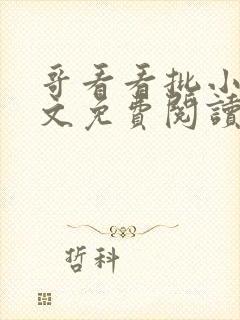 哥看看批小
文免費閱讀
哲科